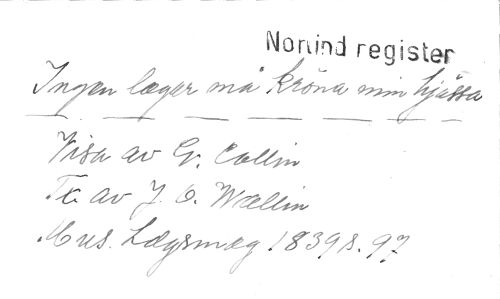 Norlind register
Ingen lager må kröna min hjässa
Visa av G. Collin
Tx. av J. O. Wallin
Mus. Lægsmag. 1839 s. 97